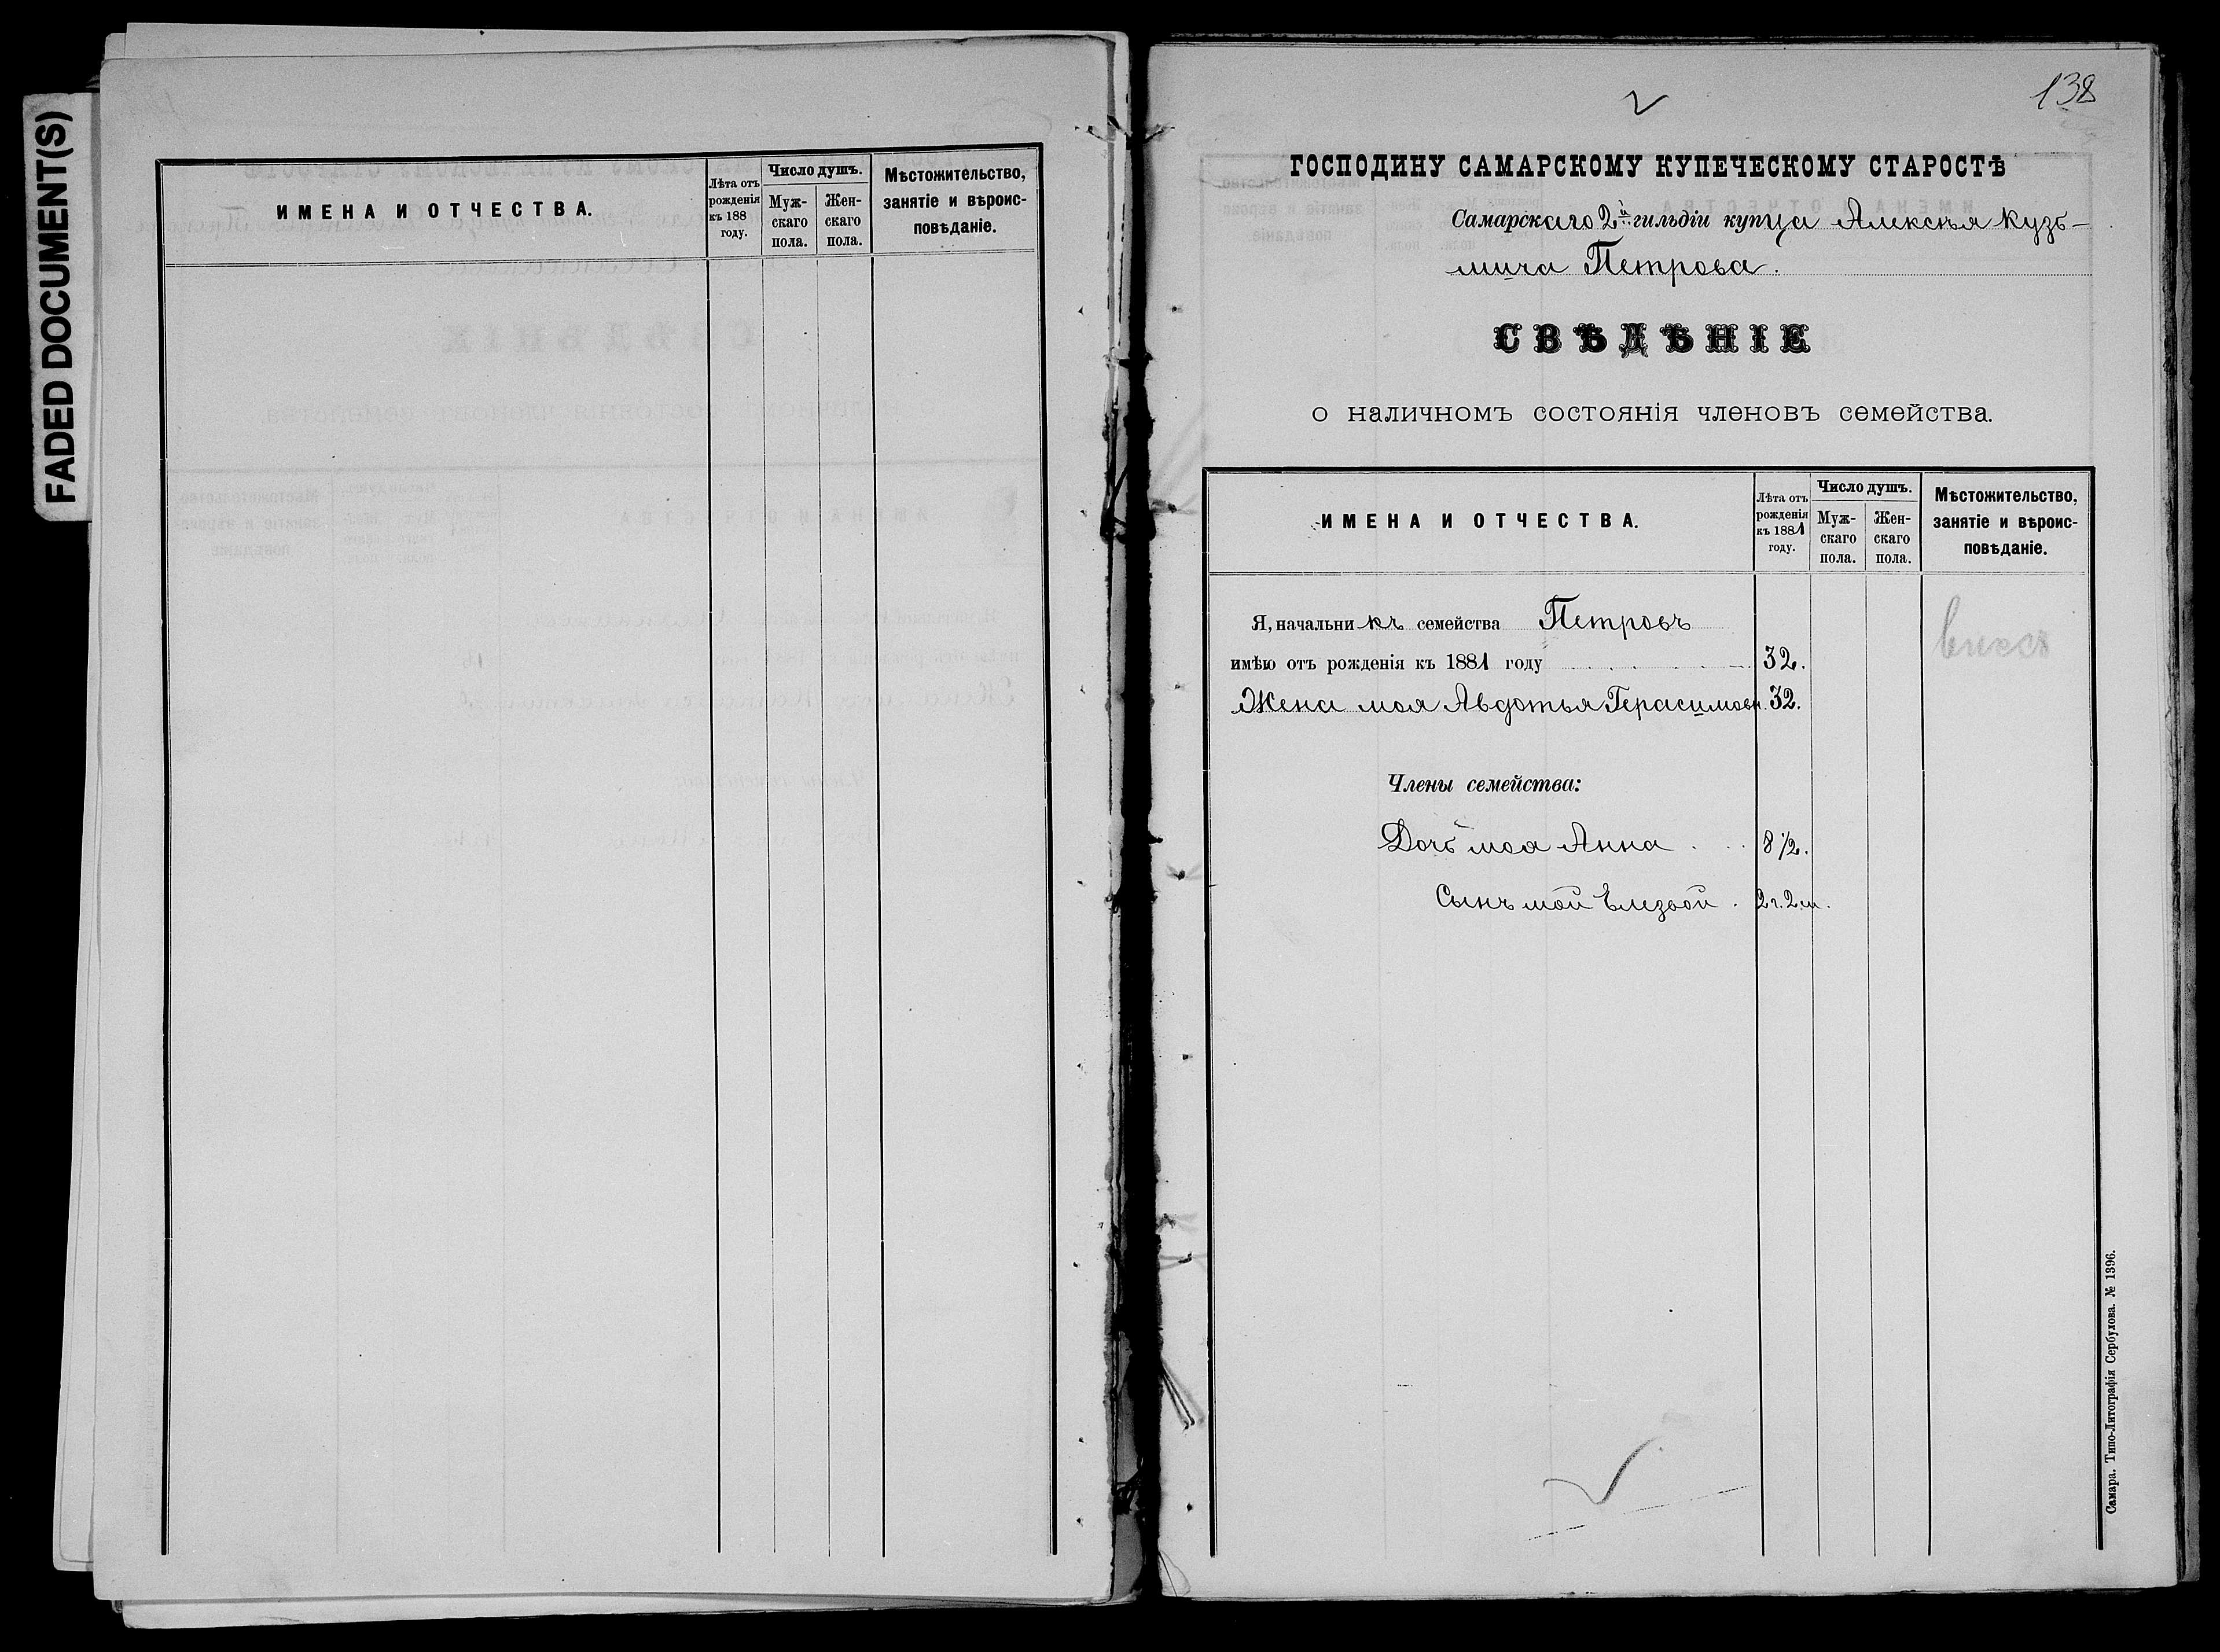 FADED DOCUMENT(S)
ИМЕНА И ОТЧЕСТВА.
Лѣта отъ рожденія къ 188 году.
Число душъ.
Мужскаго пола.
Женскаго пола.
Мѣстожительство, занятіе и вѣроисповѣданіе.
138
ГОСПОДИНУ САМАРСКОМУ КУПЕЧЕСКОМУ СТАРОСТѢ
Самарскаго 2й гильдіи купца Алексѣя Кузь-
мича Петрова.
СВѢДѢНІЕ
о наличномъ состоянія членовъ семейства.
ИМЕНА И ОТЧЕСТВА.
Лѣта отъ рожденія къ 1881 году.
Число душъ.
Муж-
скаго
пола.
Жен-
скаго
пола.
Мѣстожительство,
занятіе и вѣроис-
повѣданіе.
Я, начальникъ семейства Петровъ
имѣю отъ рожденія къ 1881 году 32.
Жена моя Авдотья Герасимовн. 32.
Члены семейства:
Дочь моя Анна 8 1/2.
Сынъ мой Елизвой 2 г. 2 м.
Самара. Типо-Литографія Сербулова. № 1396.